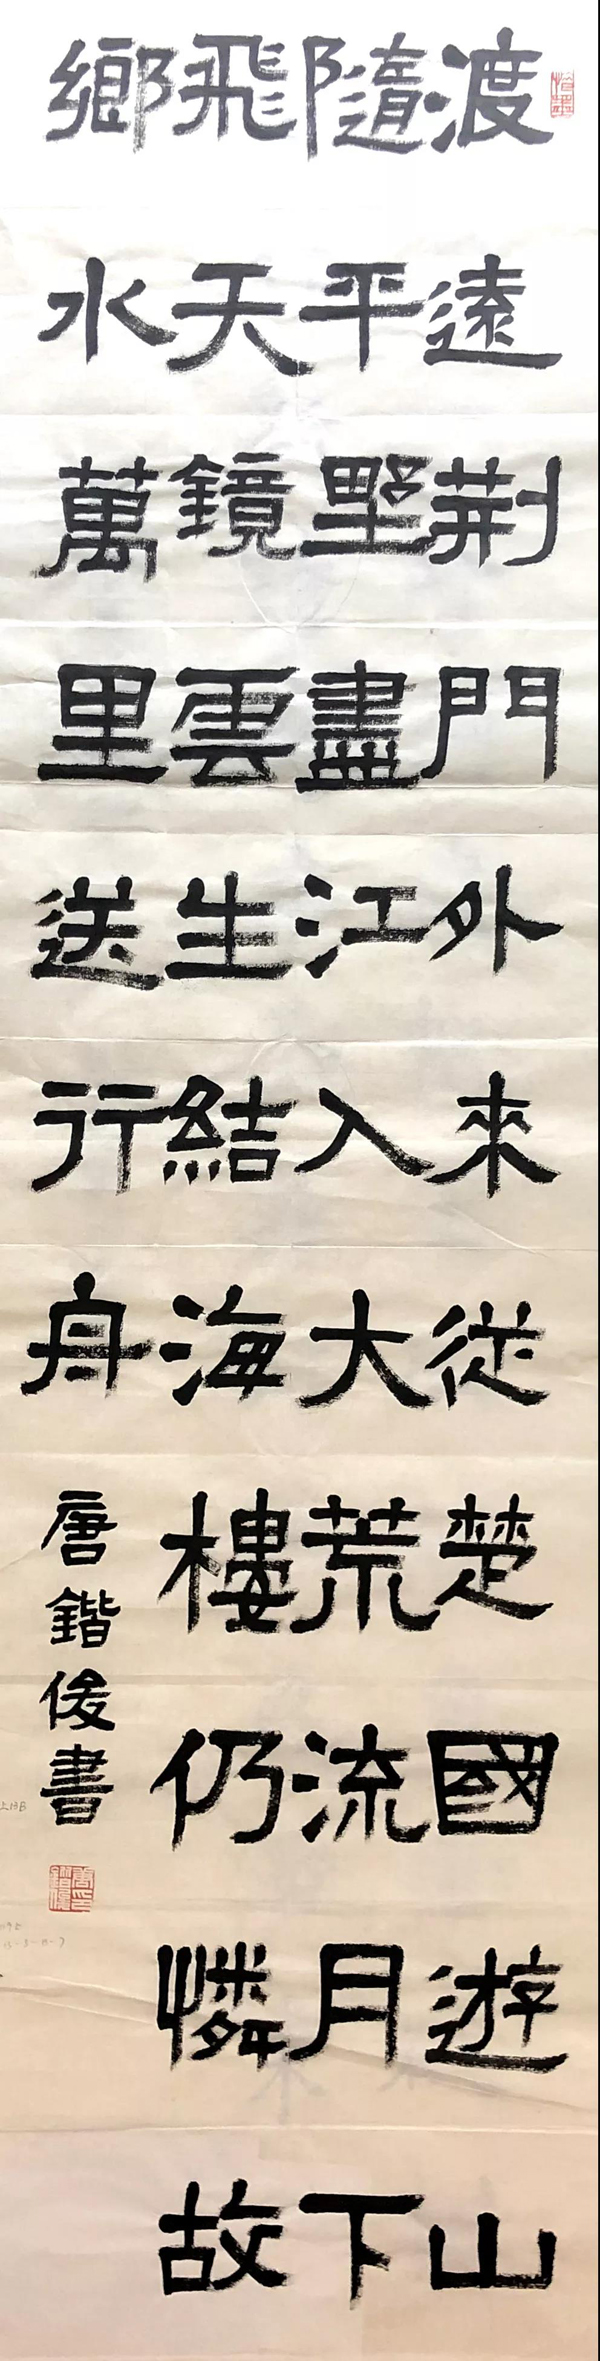 渡遠荊門外來從楚國遊山
隨平野盡江入大荒流月下
飛天鏡雲生結海樓仍憐故
鄉水萬里送行舟
唐鍇俊書